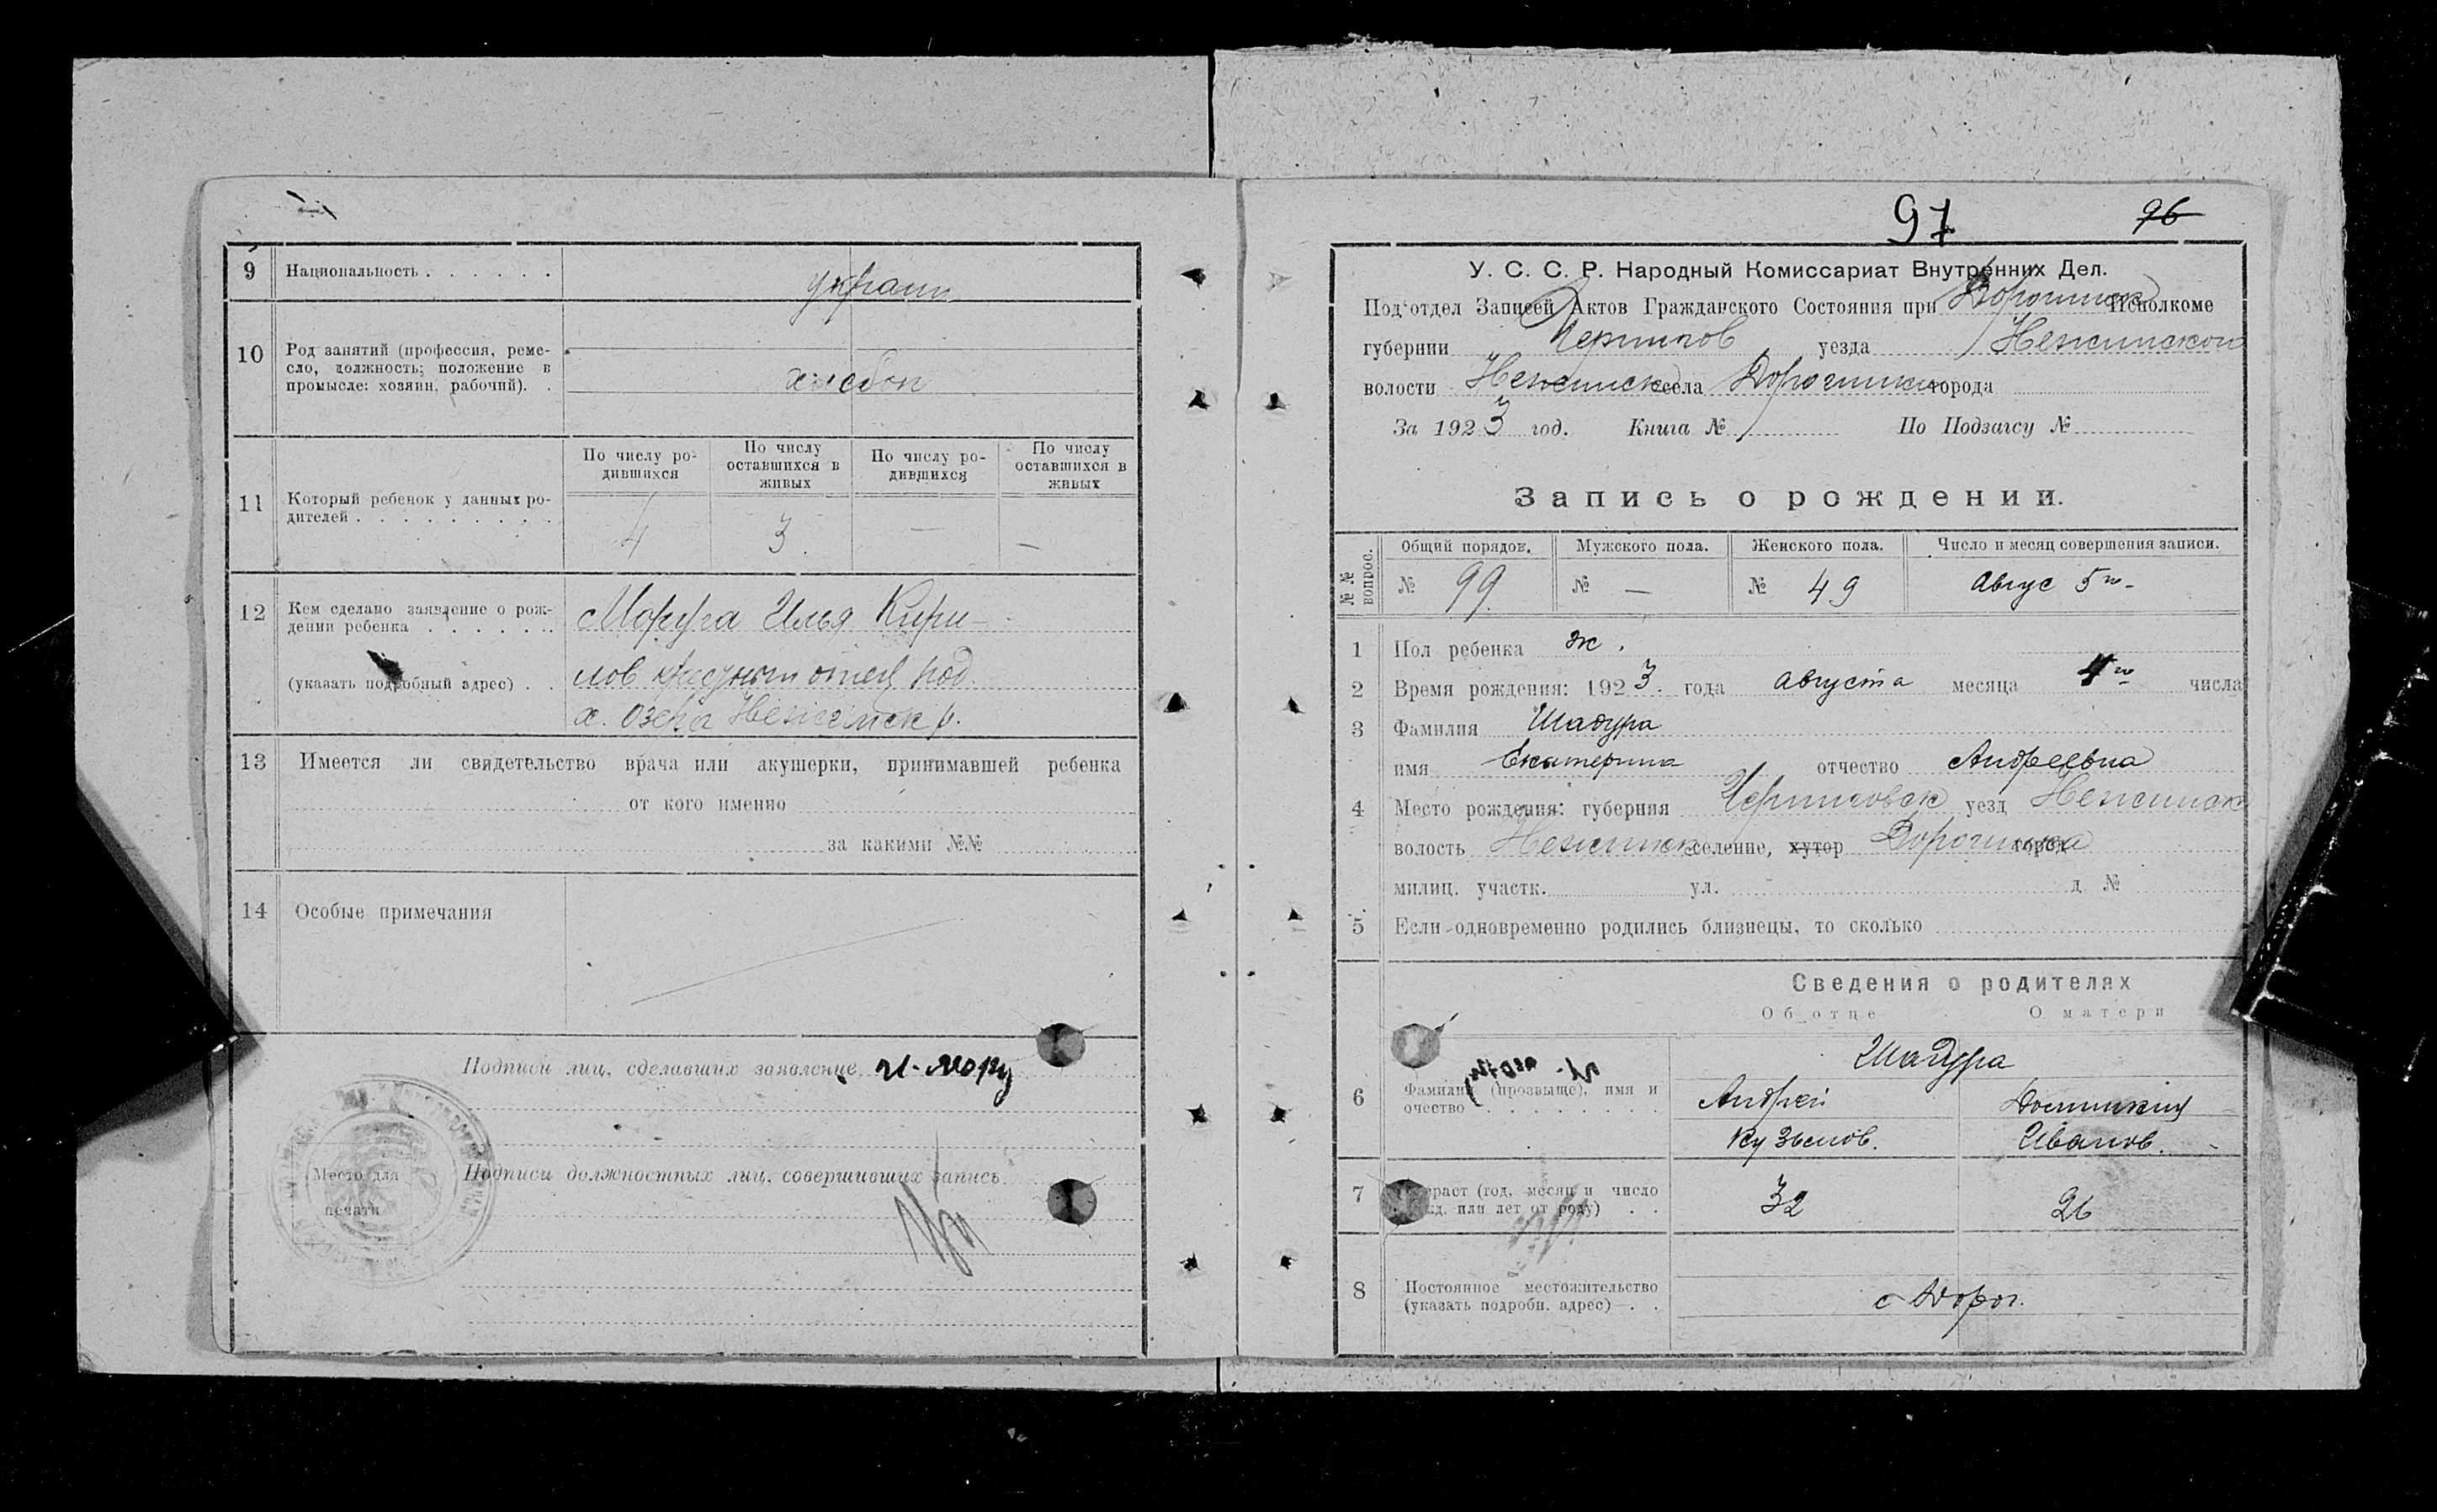 9 Национальность . . . . . .
украин
10 Род занятий (профессия, реме-
сло, должность; положение в
промысле: хозяин, рабочий). .
хлебоп
По числу ро-
дившихся
По числу
оставшихся в
живых
По числу ро-
дившихся
По числу
оставшихся в
живых
11 Который ребенок у данных ро-
дителей . . . . . . . . .
4 3. — —
12 Кем сделано заявление о рож-
дении ребенка . . . . . . .
(указать подробный адрес) . .
Мокуга Илья Кири-
лов отец
х. Озера Нежинск р.
13 Имеется ли свидетельство врача или акушерки, принимавшей ребенка
от кого именно
за какими №№
14 Особые примечания
Подписи лиц, сделавших заявление
Место для
печати
Подписи должностных лиц, совершивших запись
97 96
У. С. С. Р. Народный Комиссариат Внутренних Дел.
Под'отдел Записей Актов Гражданского Состояния при Дорогинск Исполкоме
губернии Чернигов уезда Неженского
волости Неженск села Дорогинка города
За 1923 год. Книга № По Подзагсу №
Запись о рождении.
№ № вопрос.
Общий порядок. Мужского пола. Женского пола. Число и месяц совершения записи.
№ 99 № — № 49 Авгус 5го
1 Пол ребенка ж.
2 Время рождения: 1923. года Августа месяца 4го числа
3 Фамилия Шадура
имя Екатерина отчество Андреевна
4 Место рождения: губерния Черниговск уезд Неженск
волость Неженск селение, хутор Дорогинка город
милиц. участк. ул. д №
5 Если одновременно родились близнецы, то сколько
Сведения о родителях
Об отце О матери
Шадура
6 Фамилия (прозвыще), имя и
очество . . . . . . . .
Андрей Домникия
Кузьмов. Иванов.
7 Возраст (год, месяц и число
рожд. или лет от роду) . .
32 26
8 Постоянное местожительство
(указать подробн. адрес) . .
с Дорог.